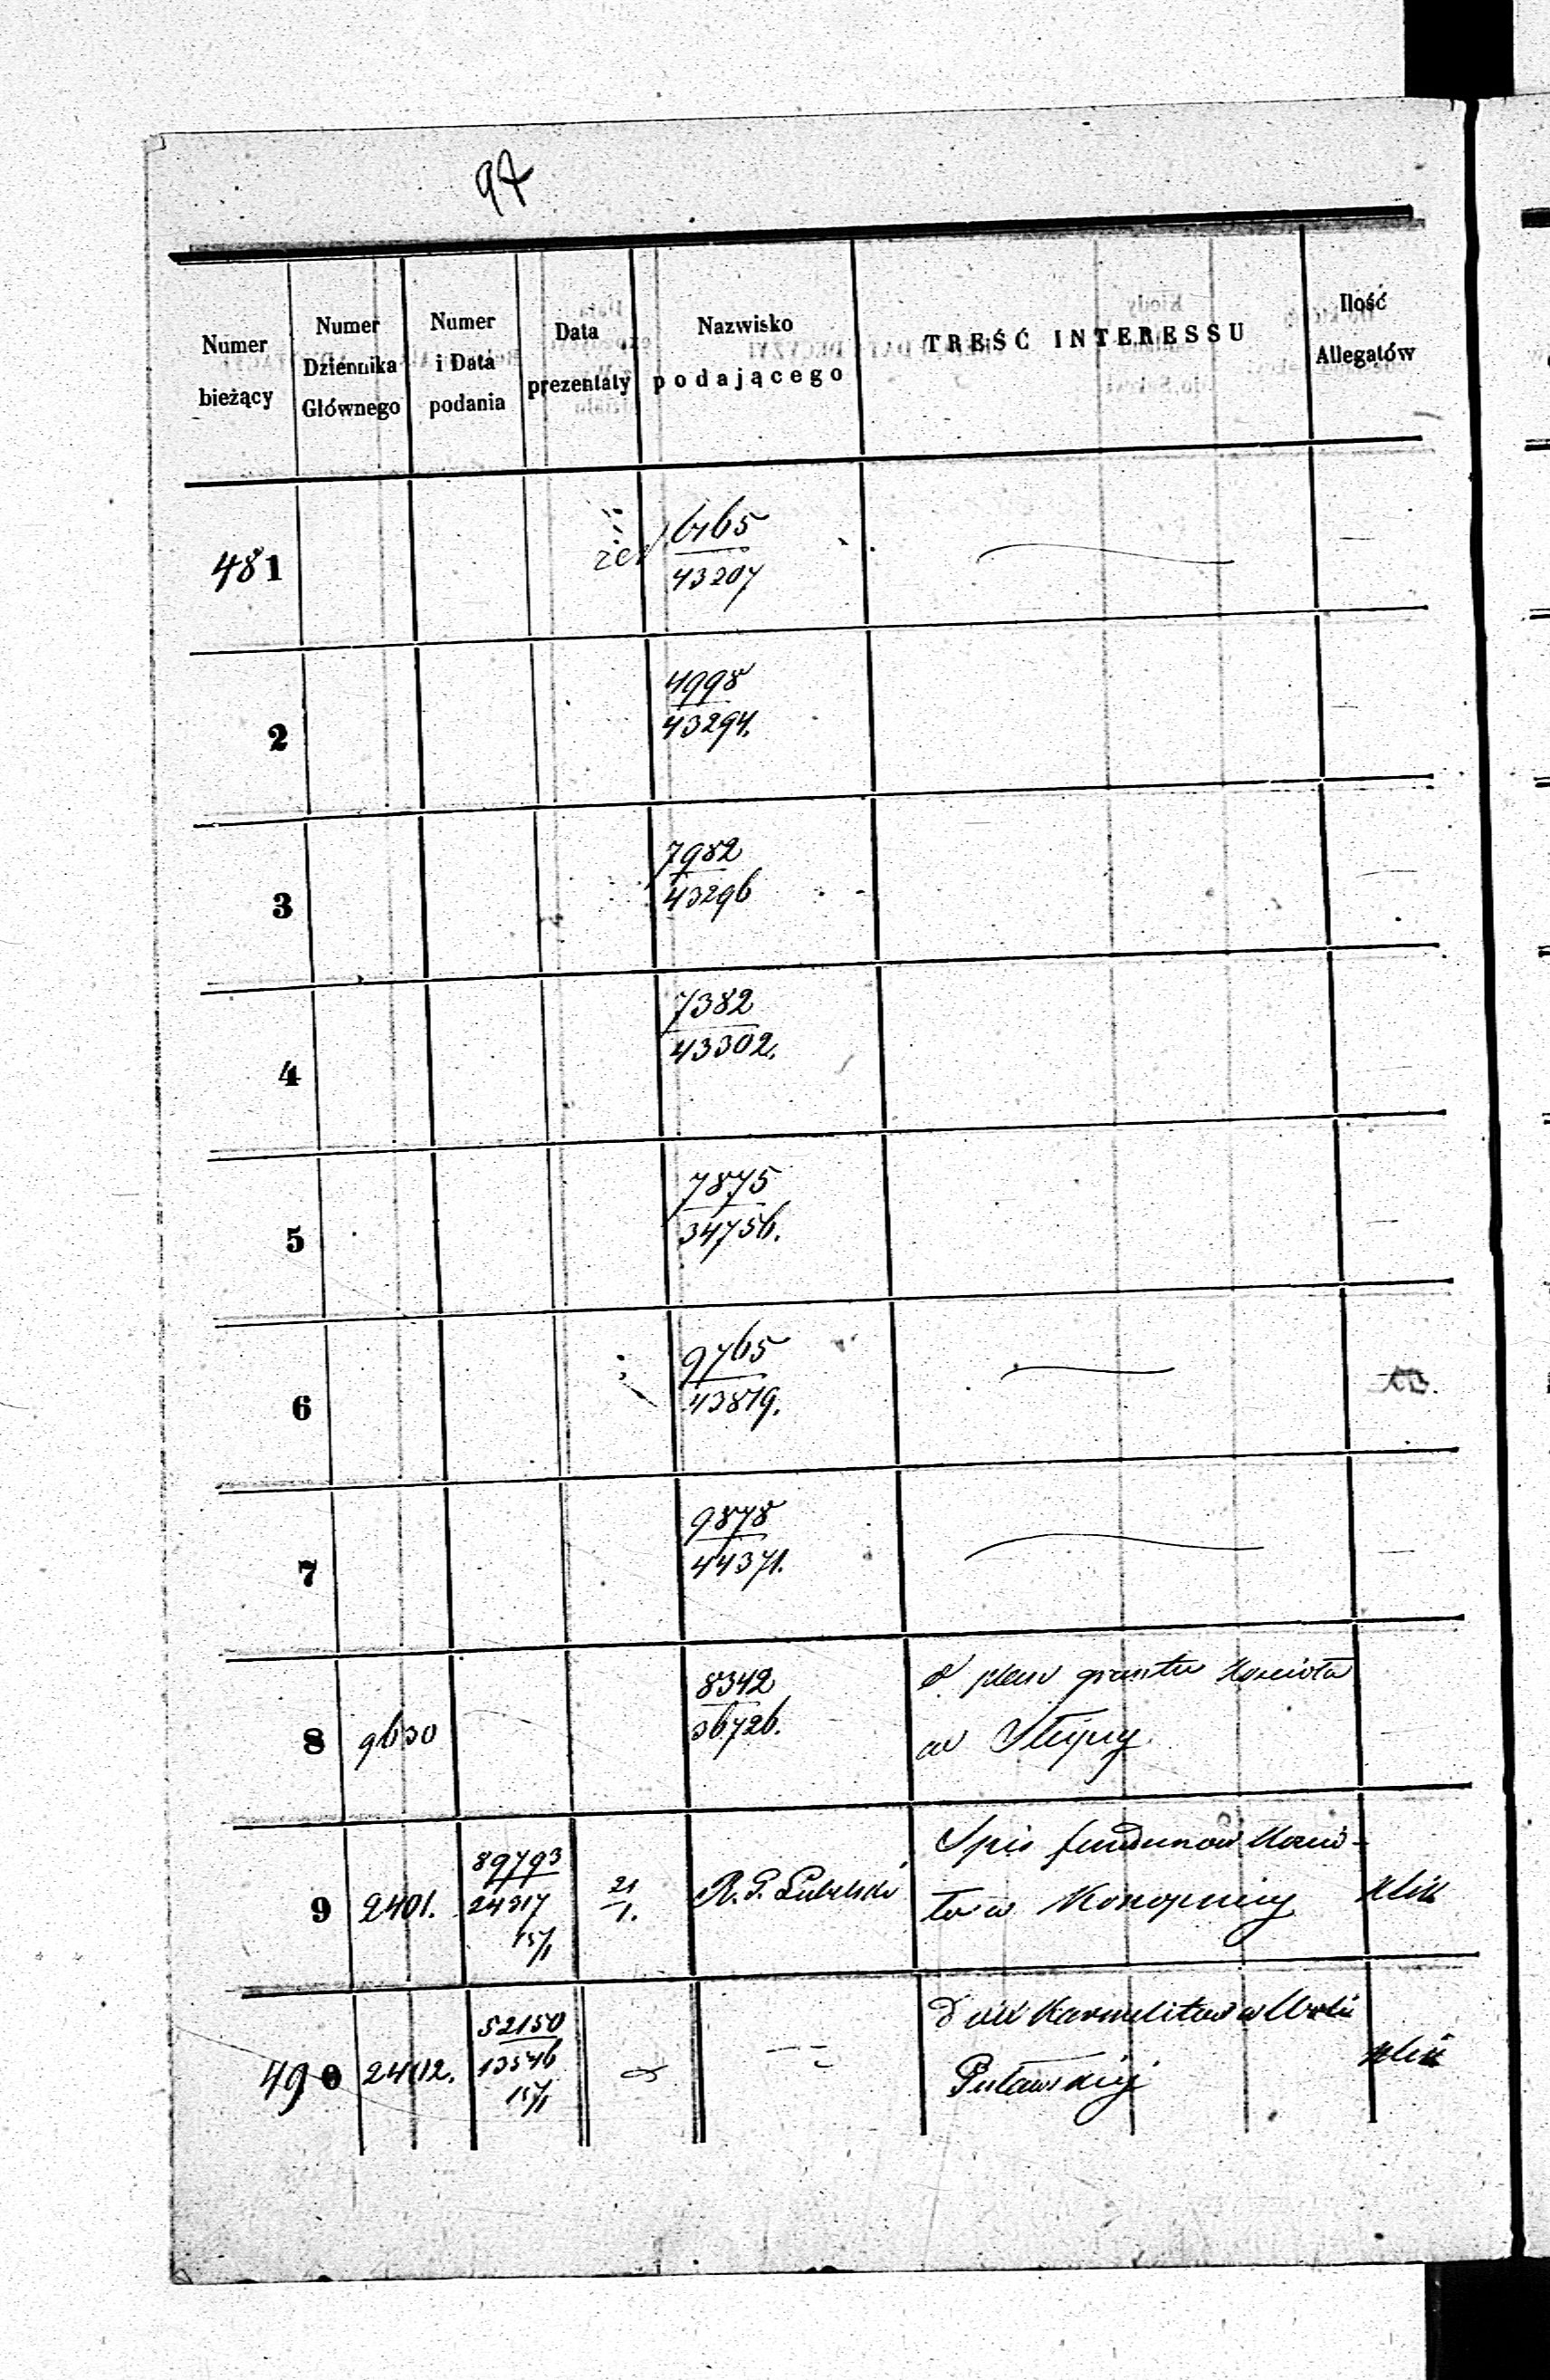 97
Numer bieżący
Numer Dziennika Głównego
Numer i Data podania
Data prezentaty
Nazwisko podającego
TREŚĆ INTERESSU
Ilość Allegatów
481
6765
43207
2
4998
43294.
3
7982
43296
4
7382
43302.
5
7875
34756.
6
9765
43819.
7
9878
44371.
8 9630
8342
36726.
gruntu Kościoła
w
9 2401.
89793
24317
15/1
21/1.
R. G. Lubelski
Spis funduszów Kościo-
ła w Konopnicy
490 2402.
52150
13546
15/1
Karmelitów w Woli
Puławskiej